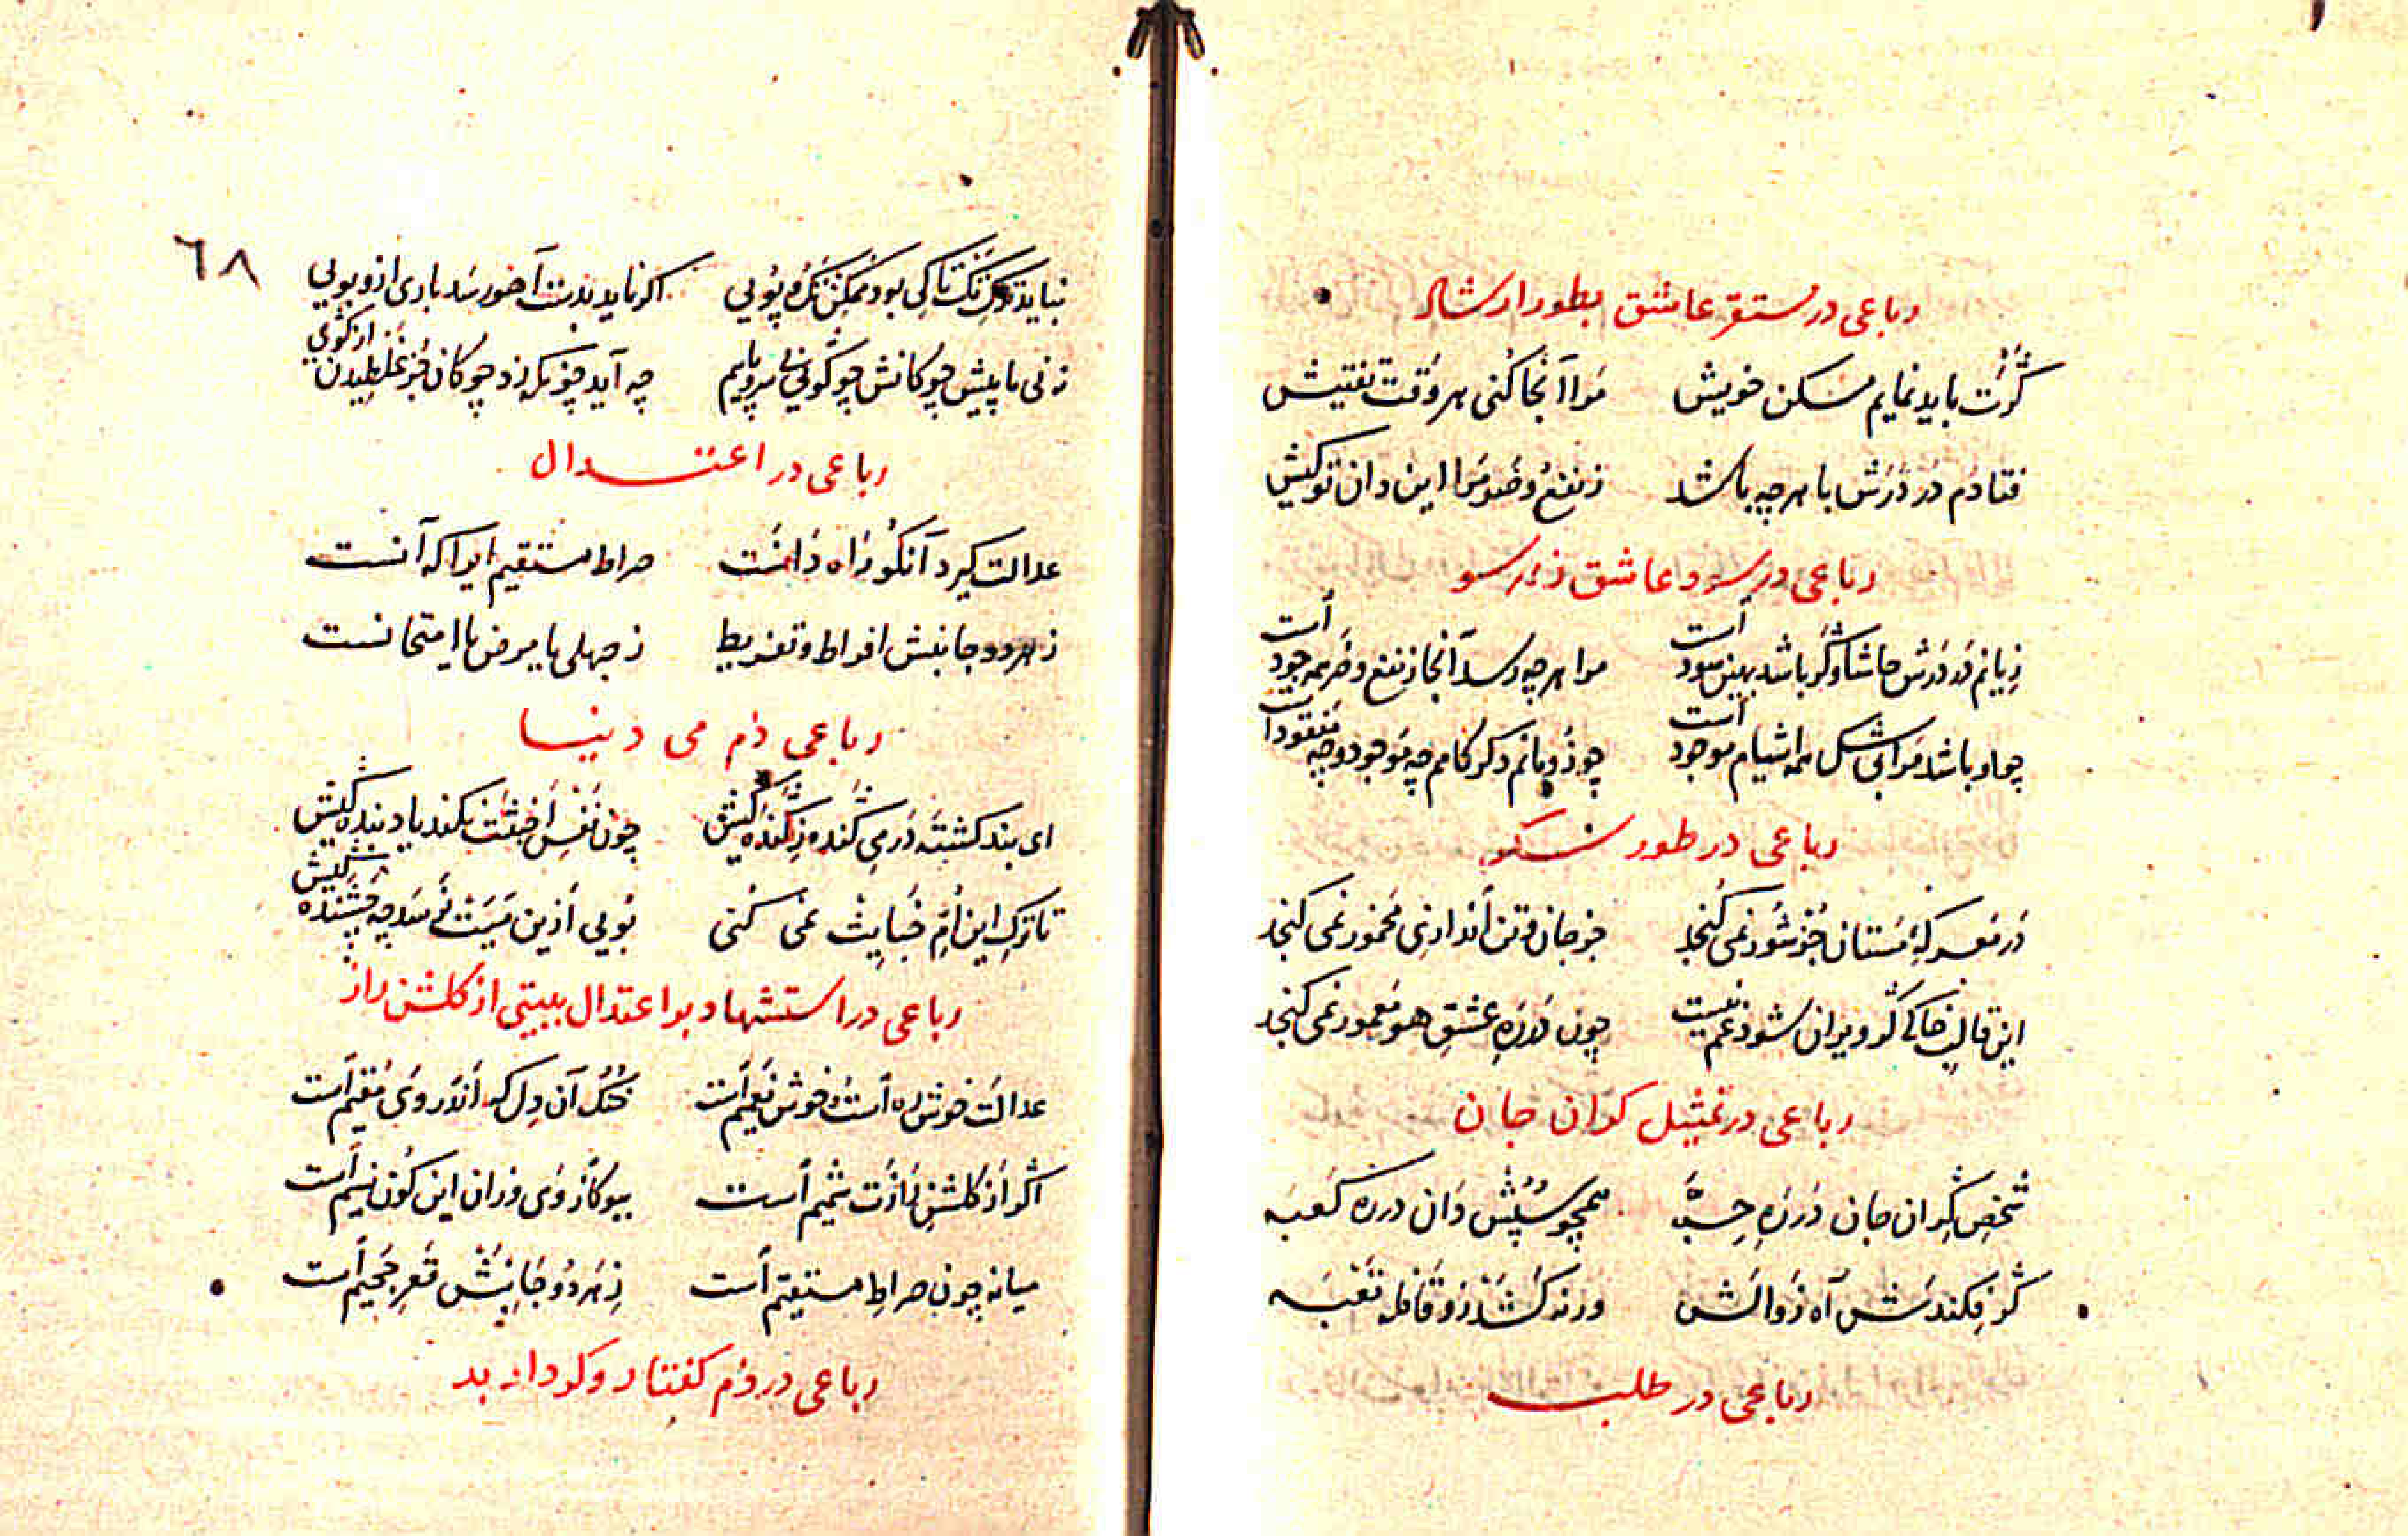 رباعی در مستقر عاشق بطور ارشاد
گرت باید نمایم مسکن خویش مرا آنجا کنی هر وقت تفتیش
فتادم در درش با هرچه باشد ز نفع و ضر مرا این دان تو کیش
رباعی در سود عاشق ز هر سو
زیانم در درش حاشا و گر باشد بهین سود است مرا هرچه رسد آنجا ز نفع و ضر همه جود است
چو او باشد مرا بی شک همه اشیام موجود است چو زو مانم دگر کامم چه موجود و چه مفقود است
رباعی در طور سکر
در معرکهٔ مستان جز شور نمی گنجد جز جان و تن اندازی مخمور نمی گنجد
این قالب خاکی گر ویران شود غم نیست چون در ره عشق هو معمور نمی گنجد
رباعی در تمثیل گران جان
شخص گران جان در ره حبه همچو سپش دان در ره کعبه
گر فکندش آه زوالش ورنه کشد زو قافله تعبه
رباعی در طلب
٦٨
نباید ترک تک تا کی بود ممکن تک و پویی اگر ناید بدست آخر رسد باری ازو بویی
زنی تا پیش چوگانش چو گویی بی سر و پایم چه آید جز مگر زد چوگان جز غلطیدن از گوی
رباعی در اعتدال
عدالت گیرد آنکو راه دانست صراط مستقیم ایرا که آنست
ز هر دو جانبش افراط و تفریط ز جهلی یا مرض یا امتحانست
رباعی ذم می دنیا
ای بند کشته در می گنده ز گنده کیش چون نفس اخبثت بکند یاد بنده کیش
تا ترک این ام خبایث نمی کنی بویی ازین میت نرسد چه چشنده کیش
رباعی در استشهاد بر اعتدال ببیتی از گلشن راز
عدالت خوش ره است و خوش نعیم است خنک آن دل که اندر وی مقیم است
اگر از گلشن رازت شمیم است ببو کاز وی وزان این گون نسیم است
میانه چون صراط مستقیم است ز هر دو جانبش قعر جحیم است
رباعی در ذم گفتار و کردار بد